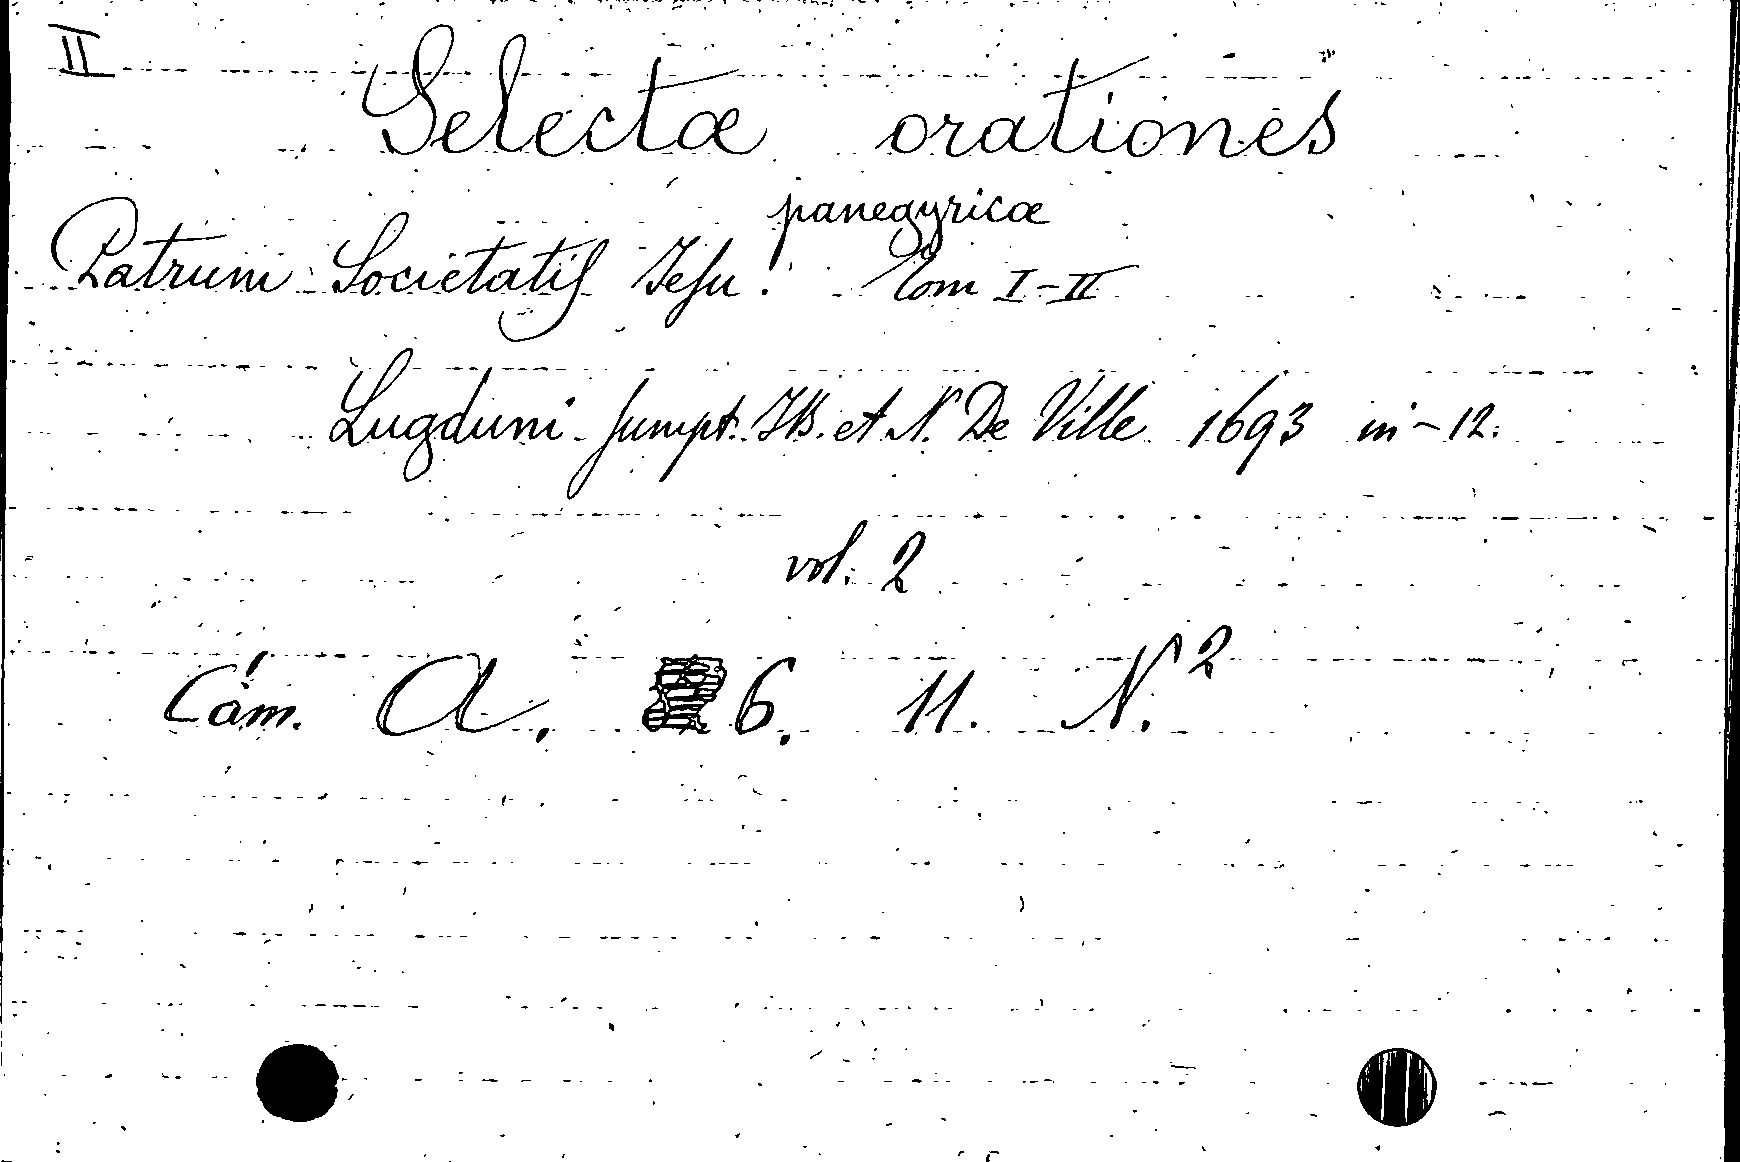 II
Selectæ orationes
panegyricæ
Patrum Societatis Jesu. Tom I-II
Lugduni sumpt. JB. et N. De Ville 1693 in-12.
vol. 2
Cam. A. 6. 11. N.2